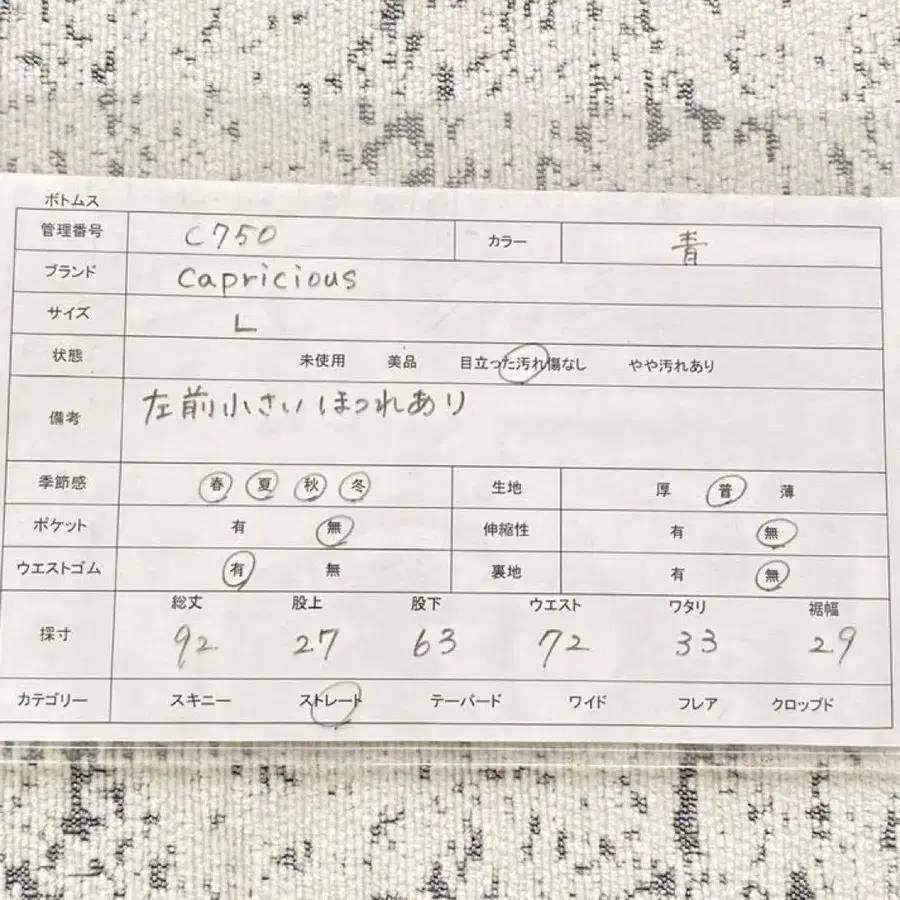 ボトムス
管理番号 C750 カラー 青
ブランド capricious
サイズ L
状態 未使用 美品 目立った汚れ傷なし やや汚れあり
備考 左前小さいほつれあり
季節感 春 夏 秋 冬 生地 厚 普 薄
ポケット 有 無 伸縮性 有 無
ウエストゴム 有 無 裏地 有 無
総丈 股上 股下 ウエスト ワタリ 裾幅
採寸 92 27 63 72 33 29
カテゴリー スキニー ストレート テーパード ワイド フレア クロップド